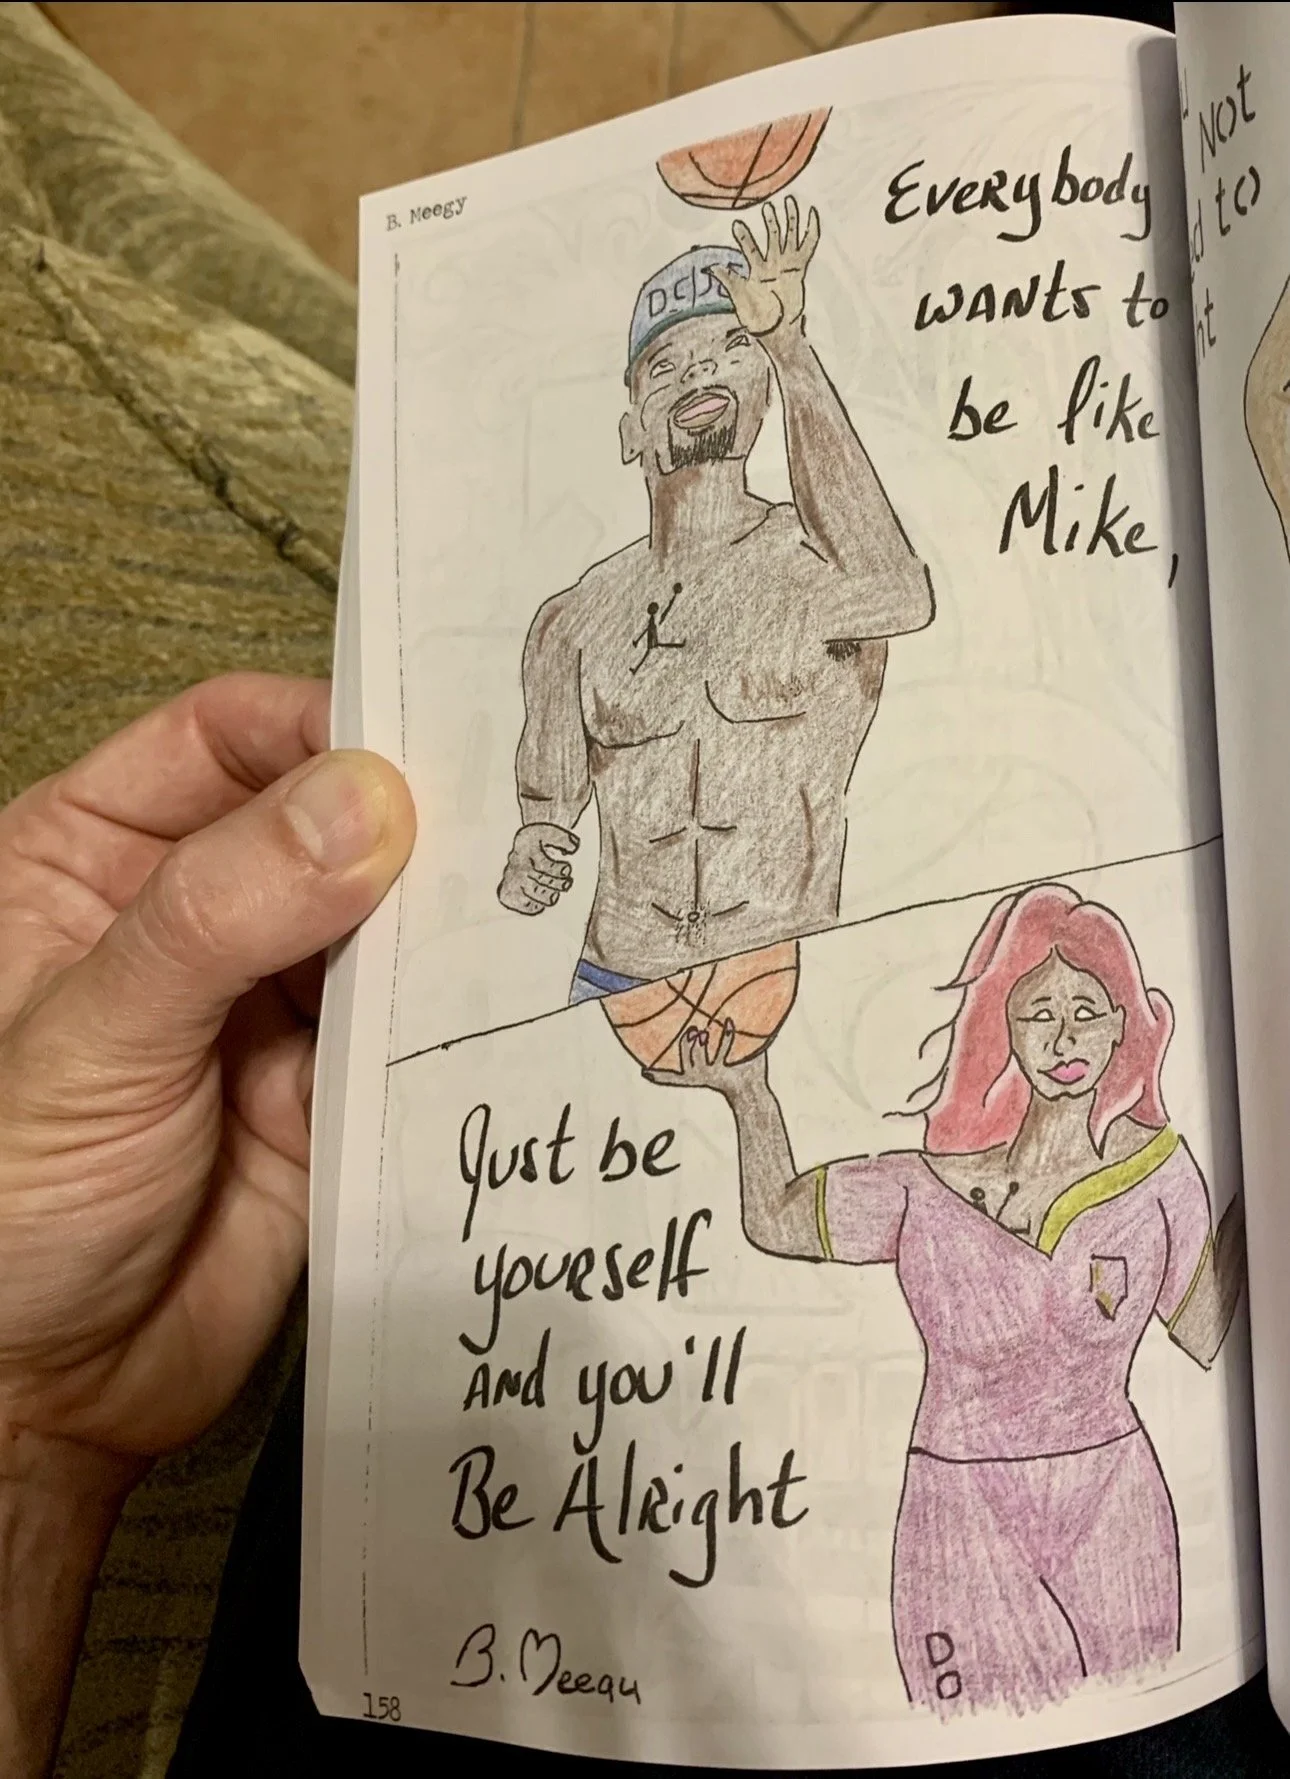 B. Meegy
Everybody
wants to
be like
Mike,
Just be
yourself
and you'll
Be Alright
B. Meegy
158
D
O
Not
to